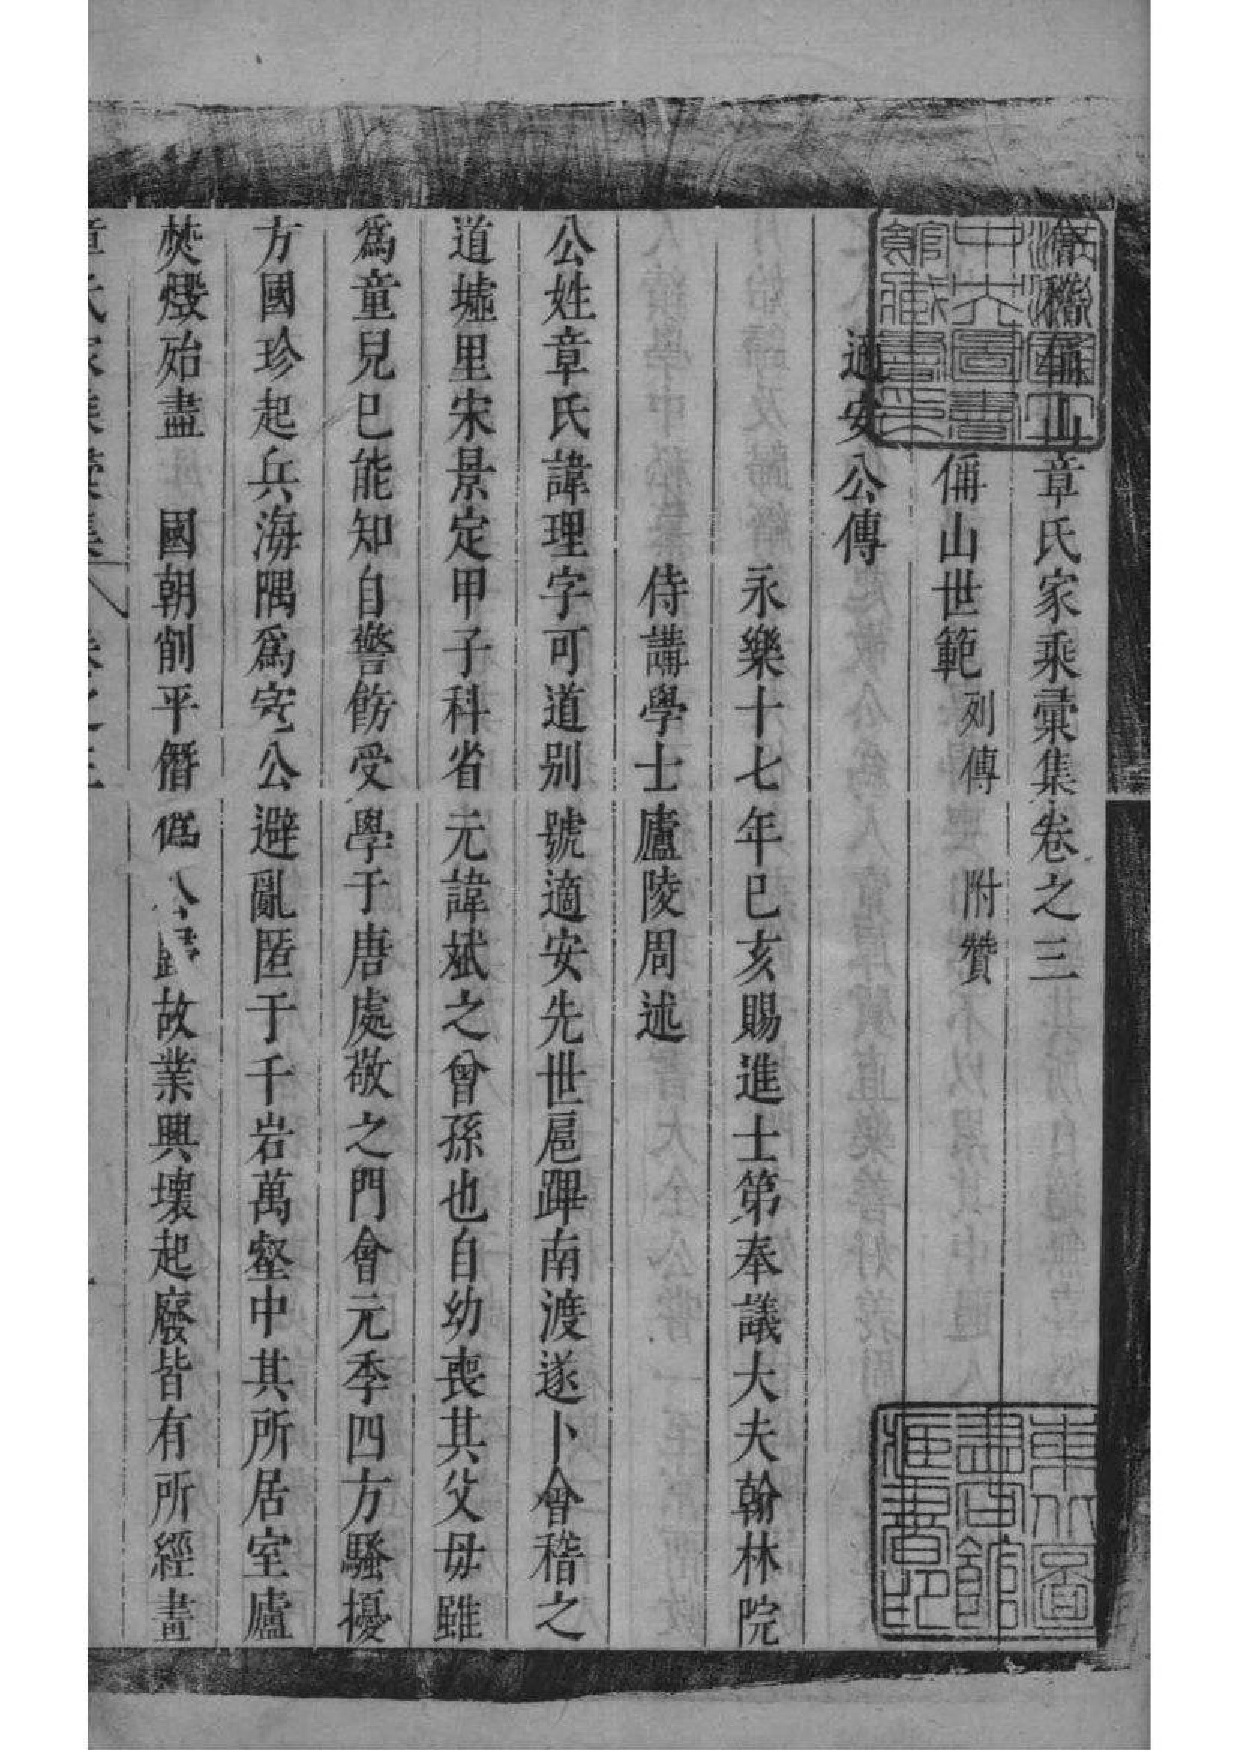 會稽偁山章氏家乘彚集卷之三
偁山世範 列傳 附贊
適安公傳
永樂十七年己亥賜進士第奉議大夫翰林院
侍講學士廬陵周述
公姓章氏諱理字可道别號適安先世扈蹕南渡遂卜會稽之
道墟里宋景定甲子科省元諱斌之曾孫也自幼喪其父母雖
爲童兒已能知自警飭受學于唐處敬之門會元季四方騷擾
方國珍起兵海隅爲宼公避亂匿于千岩萬壑中其所居室廬
焚燬殆盡 國朝削平僭僞 歸故業興壞起廢皆有所經畫
國立中央圖書館藏書印